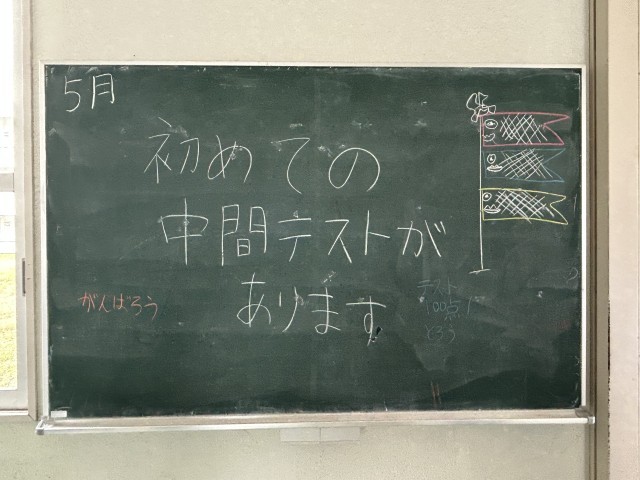 5月
初めての
中間テストが
あります
がんばろう
テスト
100点!
とろう